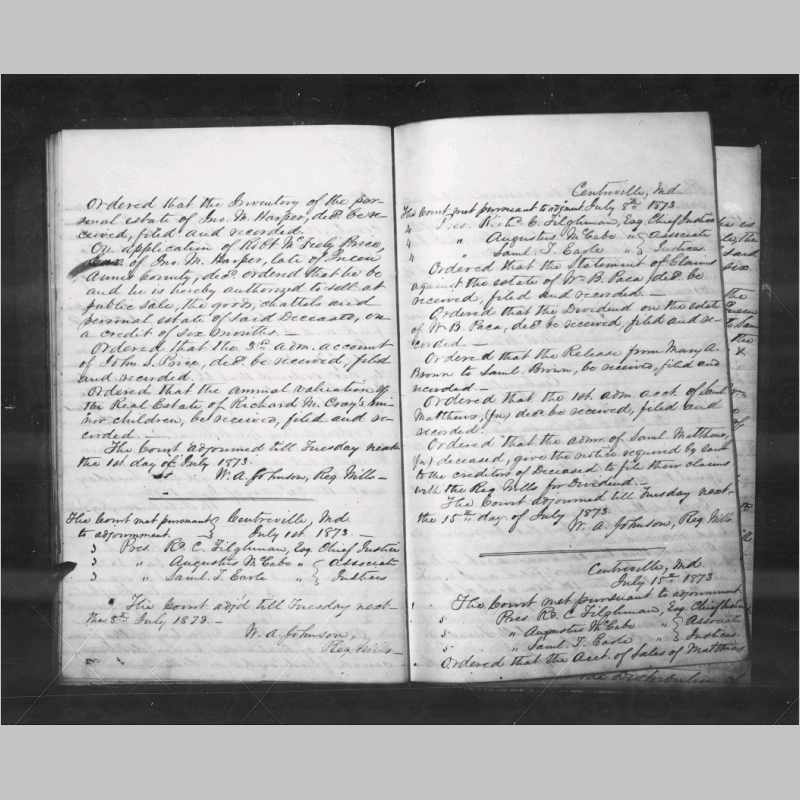 Ordered that the Inventory of the per-
sonal estate of Jno. M. Harper, decd. be re-
ceived, filed and recorded.
On application of Robt McFeely Price,
of Jno. M. Harper, late of Queen
Anne's County, decd. ordered that he be
and he is hereby authorized to sell at
public sale, the goods, chattels and
personal estate of said Deceased, on
a credit of six months. —
Ordered that the 3rd adm. account
of John I. Price, decd. be received, filed
and recorded.
Ordered that the annual valuation of
the Real Estate of Richard M. Cray's mi-
nor children, be received, filed and re-
corded. —
The Court adjourned till Tuesday next
the 1st day of July 1873.
W. A. Johnson, Reg Wills —
The Court met pursuant } Centreville, Md
to adjournment } July 1st 1873 —
Pres. Rd. C. Tilghman, Esq Chief Justice
" Augustus McCabe " } Associate
" Saml. T. Earle " } Justices
The Court adj'd till Tuesday next
the 8th July 1873. —
W. A. Johnson,
Reg Wills —
Centreville, Md
The Court met pursuant to adjmt July 8th 1873
Pres. Richd C. Tilghman, Esq Chief Justice
" Augustus McCabe " } Associate
" Saml. T. Earle " } Justices
Ordered that the Statement of Claims
against the estate of Wm B. Paca, decd. be
received, filed and recorded. —
Ordered that the Dividend on the estate
of W B. Paca, decd. be received, filed and re-
corded —
Ordered that the Release from Mary A.
Brown to Saml. Brown, be received, filed and
recorded —
Ordered that the 1st. adm. acct. of Saml
Matthews, (Jn) decd be received, filed and
recorded.
Ordered that the admr. of Saml Matthews,
(Jn) deceased, give the notice required by law
to the creditors of Deceased to file their claims
with the Reg Wills for Dividend. —
The Court adjourned till Tuesday next
the 15th day of July 1873.
W. A. Johnson, Reg Wills
Centreville, Md
July 15th 1873
The Court met pursuant to adjournment
Pres Rd C. Tilghman, Esq. Chief Justice
" Augustus McCabe " } Associate
" Saml. T. Earle " } Justices
Ordered that the Acct. of Sales of Matthias